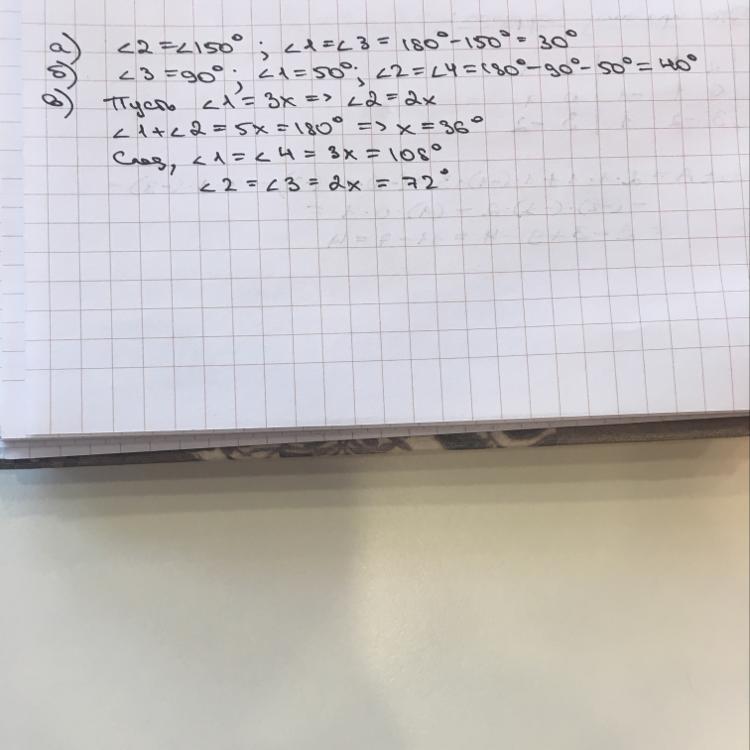 а) ∠2 = ∠150°; ∠1 = ∠3 = 180° - 150° = 30°
б) ∠3 = 90°; ∠1 = 50°; ∠2 = ∠4 = 180° - 90° - 50° = 40°
в) Пусть ∠1 = 3x => ∠2 = 2x
∠1 + ∠2 = 5x = 180° => x = 36°
След, ∠1 = ∠4 = 3x = 108°
∠2 = ∠3 = 2x = 72°